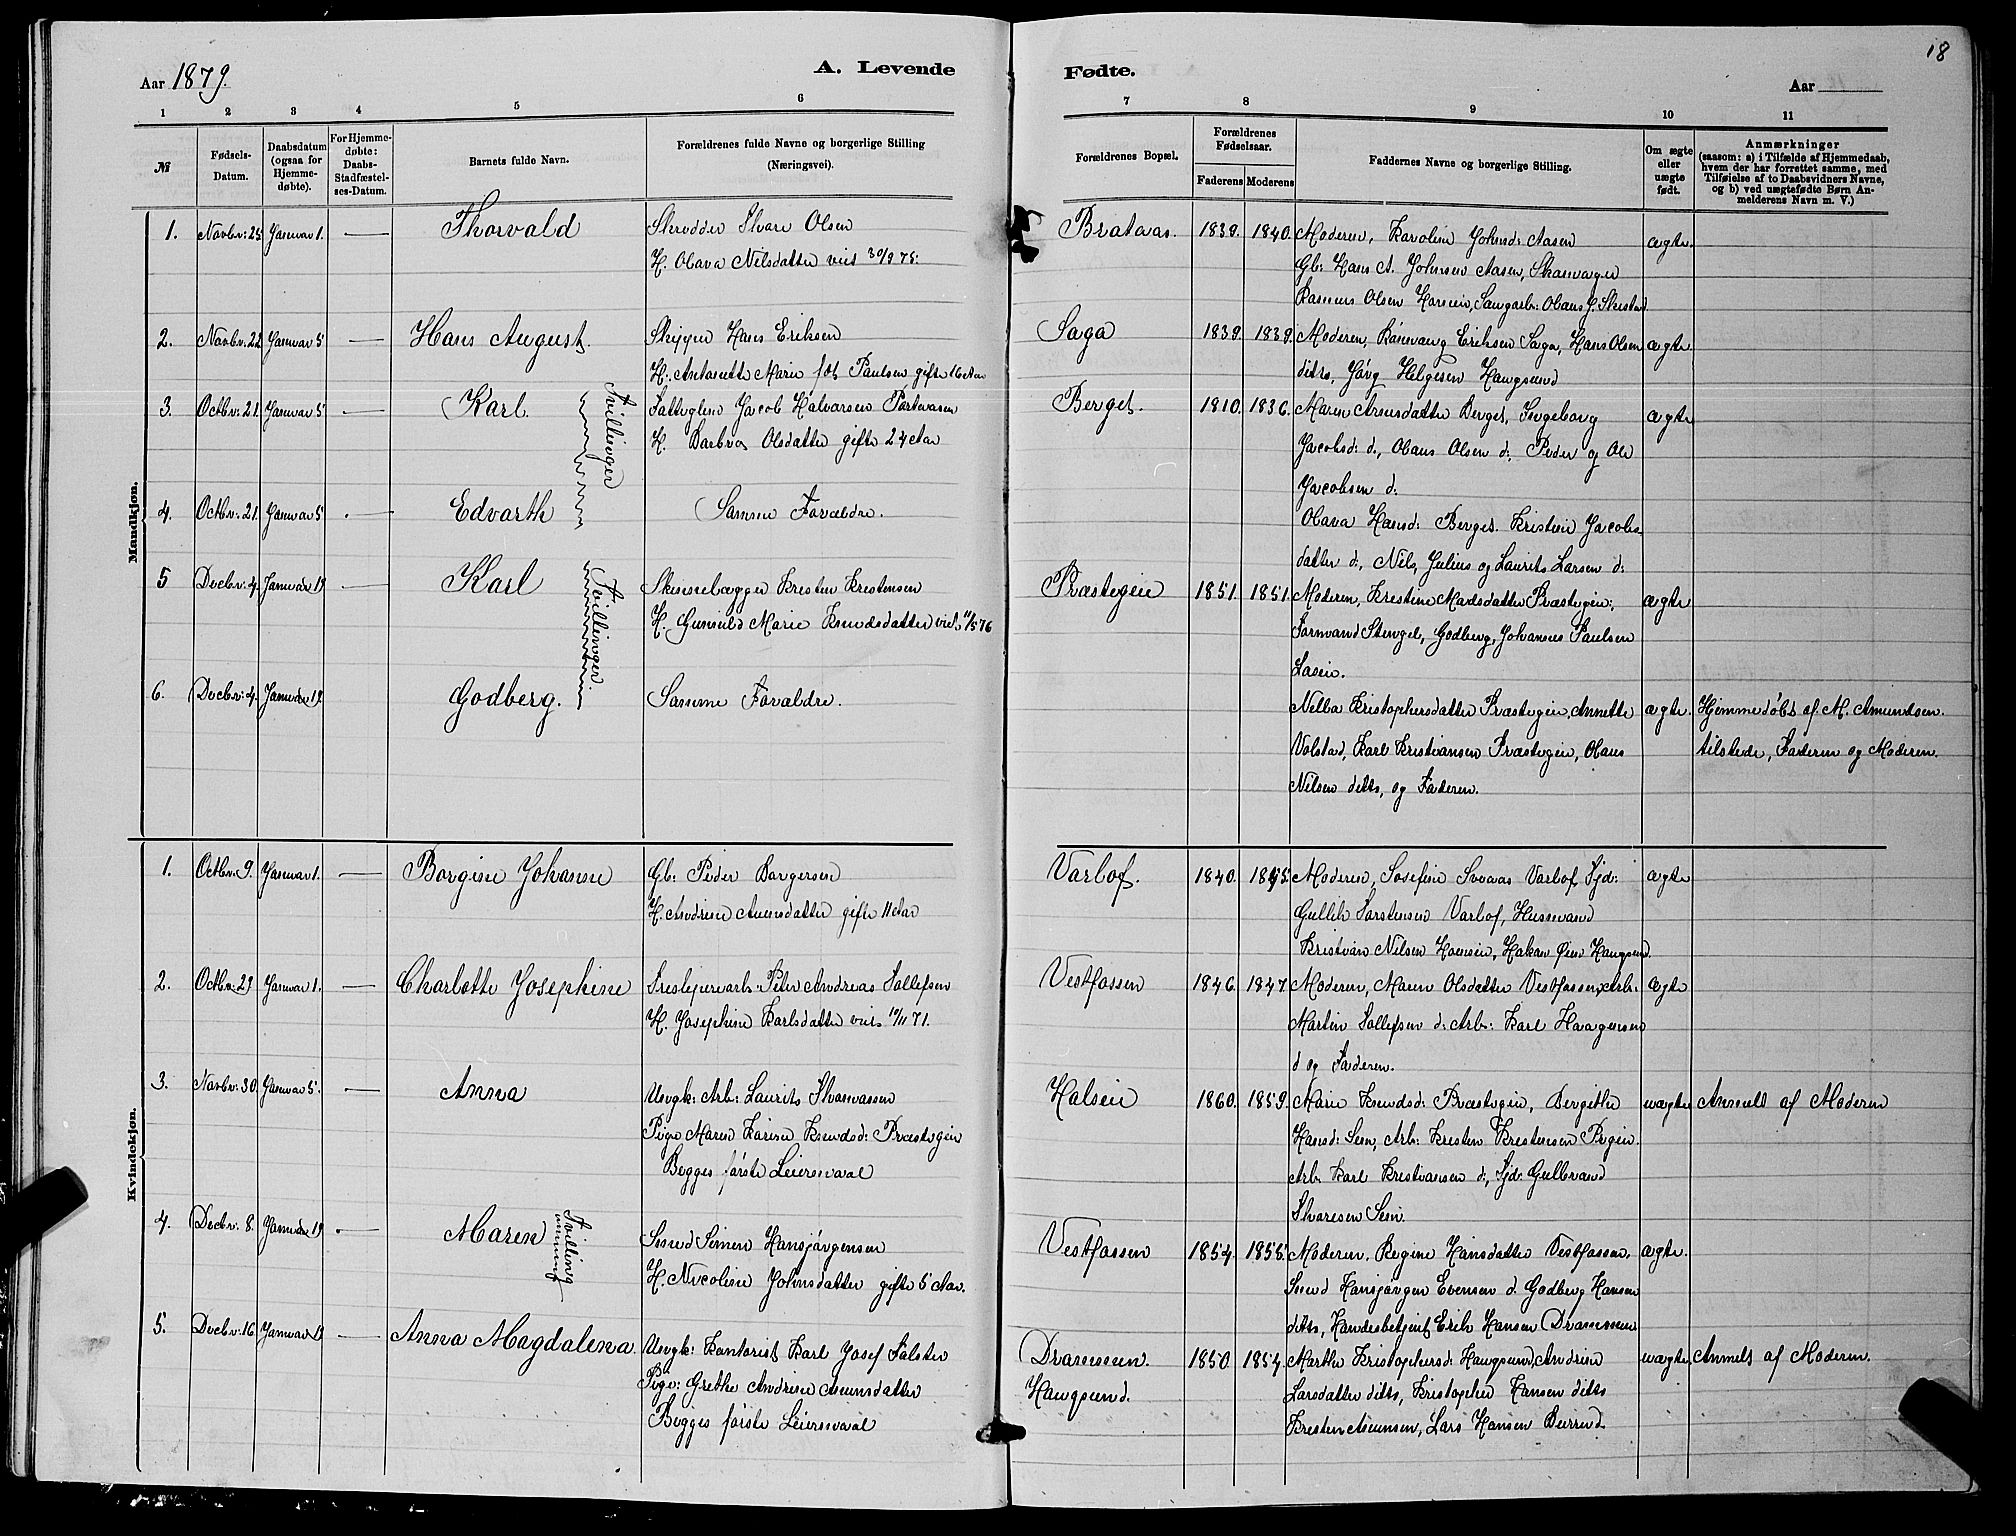 18
Aar 1879.
A. Levende
Fødte.
Aar
1 2 3 4 5 6 7 8 9 10 11
№
Fødsels-Datum.
Daabsdatum (ogsaa for Hjemme-døbte).
For Hjemme-døbte: Daabs-Stadfæstel-ses-Datum.
Barnets fulde Navn.
Forældrenes fulde Navne og borgerlige Stilling
(Næringsvei).
Forældrenes Bopæl.
Forældrenes Fødselsaar.
Faderens Moderens
Faddernes Navne og borgerlige Stilling.
Om ægte eller uægte født.
Anmærkninger
(saasom: a) i Tilfælde af Hjemmedaab,
hvem der har forrettet samme, med
Tilføielse af to Daabsvidners Navne,
og b) ved uægtefødte Børn An-
melderens Navn m. V.)
Mandkjøn.
1. Novbr: 25 Januar 1. Thorvald Skrædder Ivare Olsen Brataas. 1839. 1840. Moderen, Karoline Johnsd: Aasen ægte.
H. Olava Nilsdatter viet 30/9 75. Gb: Hans A. Johnsen Aasen,
Rasmus Olsen
2. Novbr: 22 Januar 5 Hans August. Skipper Hans Eriksen Saga 1839. 1839. Moderen, Eriksen Saga, Hans Olsen ægte.
H. Antonette Marie fød Paulsen gifte 16 Aar ditto, Jørg Helgesen Haugsund
3. Octbr: 21. Januar 5 Karl. Tvillinger Fattiglem Jacob Halvorsen Berget. 1810. 1836. Maren Arnesdatter Berget, Ingeborg ægte
H. Barbra Olsdatter gifte 24 Aar Jacobsd: d., Olaus Olsen d:, Peder og Ole
Jacobsen d:
4. Octbr: 21. Januar 5 Edvarth Samme Forældre. Olava Hansd: Berget. Kristine Jacobs-
datter d:, Nils, Julius og Laurits Larsen d:
5 Decbr: 4. Januar 19 Karl Tvillinger Kresten Kristensen Præstegien 1851. 1851. Moderen, Kristine Madsdatter Præstegien, ægte
H. Gunnild Marie Knudsdatter viet 11/5 76 Formand Stengel, Godberg, Johannes Paulsen
6. Decbr: 4. Januar 19 Godberg. Samme Forældre. Kristophersdatter Præstegien, Annette ægte. Hjemmedøbt af M. Amundsen.
Volstad, Karl Kristiansen Præstegien, Olaus tilstede, Faderen og Moderen.
Nilsen ditto, og Faderen.
Kvindekjøn.
1. Octbr: 9. Januar 1. Borgine Johanne Gb: Peder Borgersen Varlof. 1840. Moderen, Josefine Varlof, ægte
H. Andrine gifte 11 Aar Gullik Torstensen Varlof, Husmand
Kristian Nilsen Hakan Haugsund.
2. Octbr: 29 Januar 1. Charlotte Josephine Peter Andreas Tollefsen Vestfossen 1846. 1847. Moderen, Maren Olsdatter Vestfossen, Arb: ægte
H. Josephine Karlsdatter viet 10/11 71. Martin Tollefsen d: Arb: Karl Haagensen
d og Faderen.
3. Novbr: 30. Januar 5. Anna Ungk: Arb: Laurits Halseie 1860. 1859. Marie Knudsd: Præstegien, Bergithe uægte Anmeldt af Moderen
Pige Maren Karine Knudsd: Præstegien Hansd: Sem, Arb: Kresten Kristensen
Begges første Leiersmaal Arb. Karl Kristiansen d:, Sjd: Gulbrand
Ivaresen Sem.
4. Decbr: 8. Januar 19 Maren Tvilling Smed Simen Hansjørgensen Vestfossen 1854. 1855. Moderen, Regine Hansdatter Vestfossen, ægte.
H. Nicoline Johnsdatter gifte 5 Aar. Smed Hansjørgen Evensen d. Godberg Hansen
ditto, Handesbetjent Erik Hansen Drammen
5. Decbr: 16. Januar 19 Anna Magdalena. Ungk: Kontorist Karl Josef Falster Drammen. 1850. 1854. Marthe Kristophersd: Haugsund, Andrine uægte. Anmeldt af Moderen.
Pige: Grethe Andrine Haugsund. Larsdatter ditto, Kristopher Hansen ditto
Begges første Leiersmaal Lars Hansen